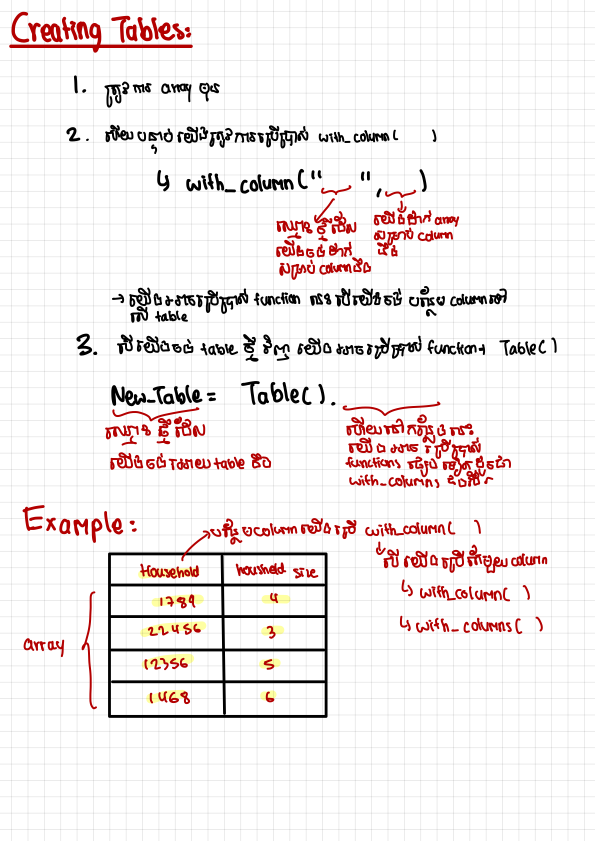 Creating Tables:
1. ត្រូវការ array មុន
2. ហើយបន្ទាប់យើងត្រូវការប្រើប្រាស់ with_column( )
↳ with_column(" ", )
ឈ្មោះថ្មីដែល
យើងចង់ដាក់
សម្រាប់ columnនឹង
យើងដាក់ array
សម្រាប់ column
នឹង
→ យើងអាចប្រើប្រាស់ function នេះបើយើងចង់ បន្ថែម columnនៅ
លើ table
3. បើយើងចង់ table ថ្មី វិញ យើងអាចប្រើប្រាស់ function Table()
New_Table = Table().
ឈ្មោះថ្មីដែល
យើងចង់ table នឹង
ហើយនៅកន្លែងនេះ
យើងអាច ប្រើប្រាស់
functions ផ្សេងទៀតដូចជា
with_columns
Example:
បន្ថែមcolumnយើងប្រើ with_column( )
បើ យើងប្រើ column
↳ with_column( )
↳ with_columns( )
Household houshold size
1789 4
22456 3
array
12356 5
1468 6